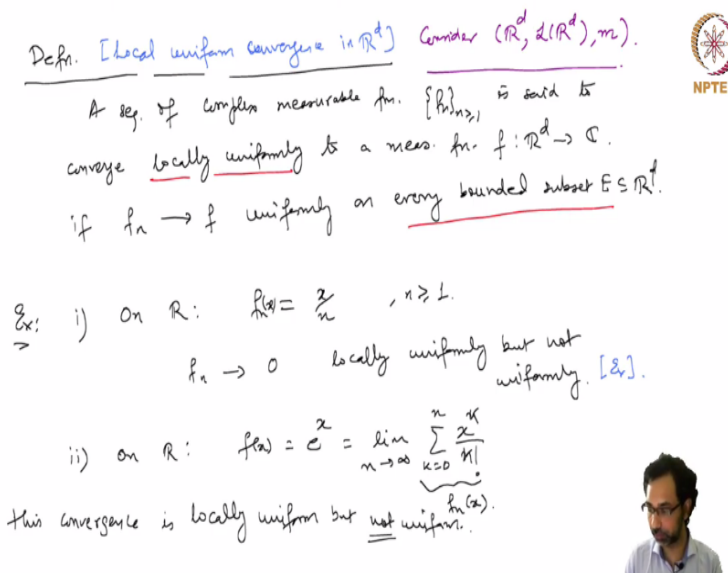 Defn. [Local uniform convergence in ℝ^d] Consider (ℝ^d, ℒ(ℝ^d), m).
NPTE
A seq. of complex measurable fn. {fn}n≥1 is said to
converge locally uniformly to a meas. fn. f : ℝ^d → ℂ.
if fn → f uniformly on every bounded subset E ⊆ ℝ^d.
Ex: i) On ℝ: fn(x) = x/n , n ≥ 1.
fn → 0 locally uniformly but not
uniformly. [Ex].
ii) On ℝ: f(x) = e^x = lim n→∞ ∑ k=0 n x^k/k!
fn(x).
This convergence is locally uniform but not uniform.